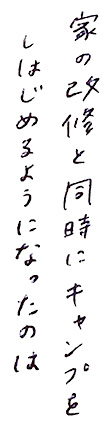 家の改修と同時にキャンプを
しはじめるようになったのは